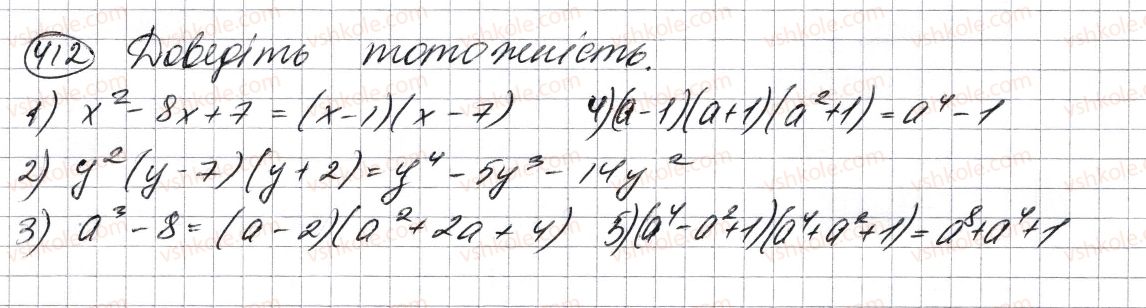 412 Доведіть тотожність.
1) x² - 8x + 7 = (x - 1)(x - 7) 4) (a - 1)(a + 1)(a² + 1) = a⁴ - 1
2) y² (y - 7)(y + 2) = y⁴ - 5y³ - 14y²
3) a³ - 8 = (a - 2)(a² + 2a + 4) 5) (a⁴ - a² + 1)(a⁴ + a² + 1) = a⁸ + a⁴ + 1
vshkole.com